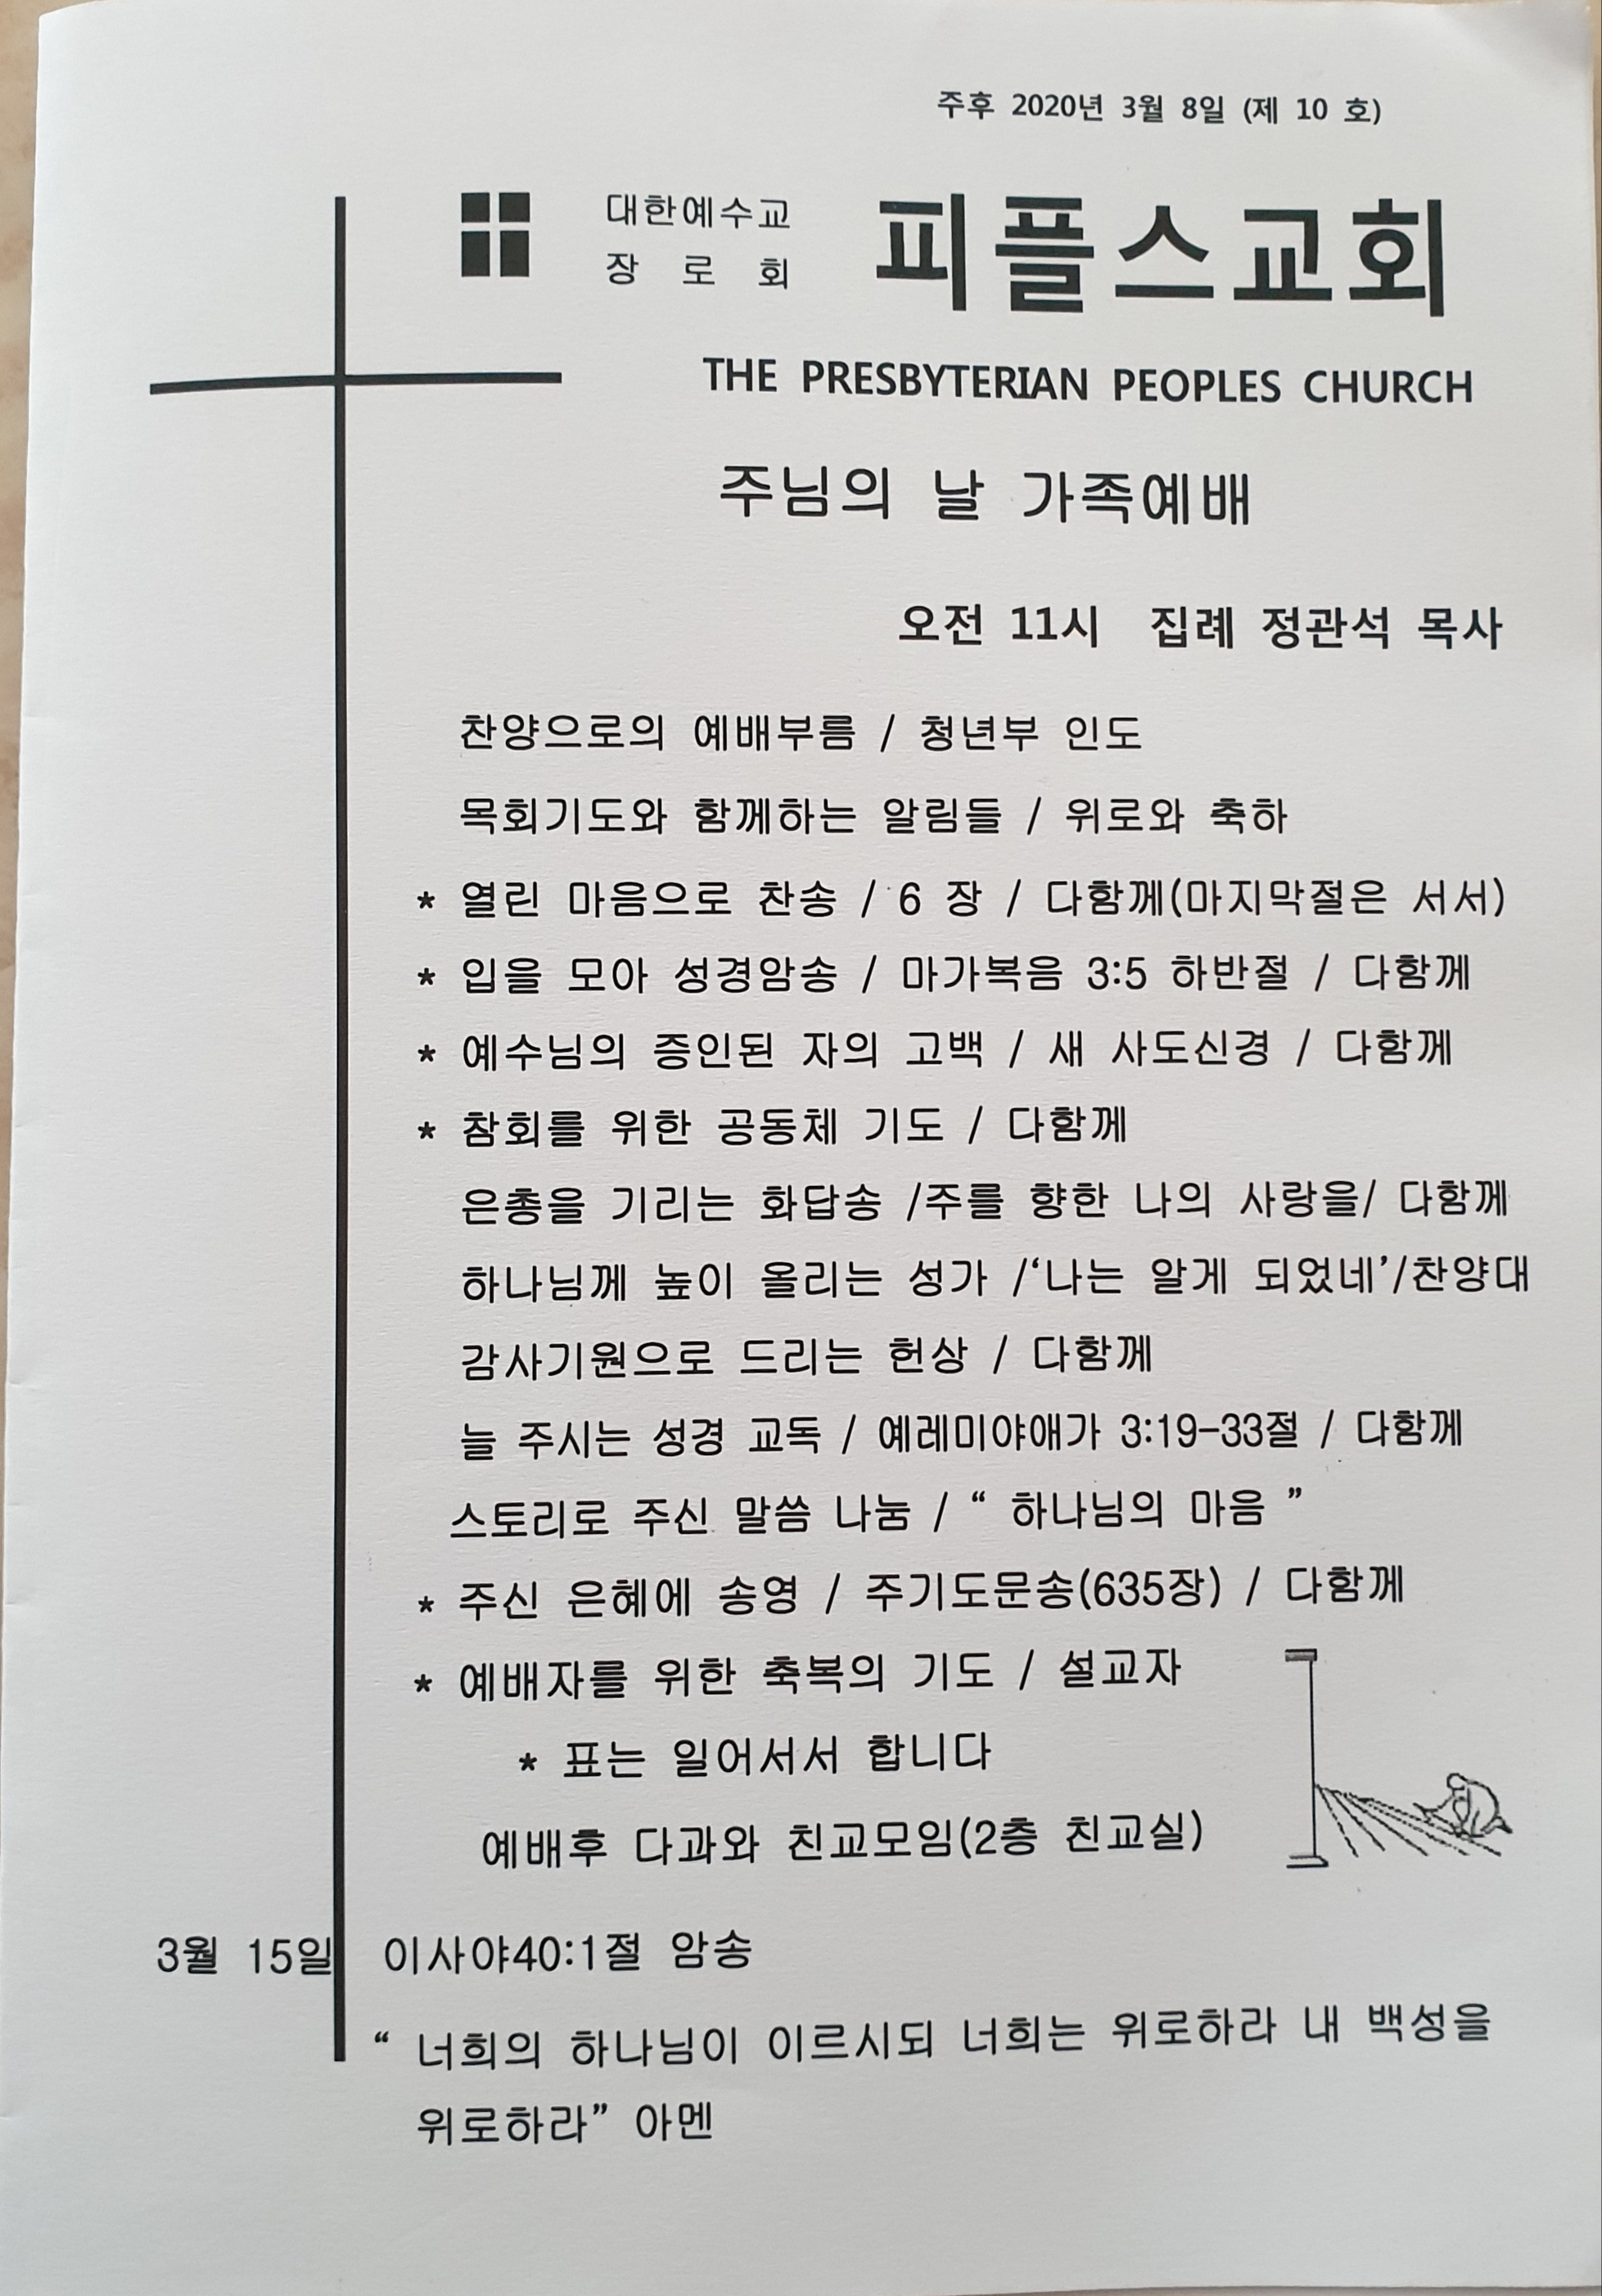 주후 2020년 3월 8일 (제 10 호)
대한예수교
장 로 회
피플스교회
THE PRESBYTERIAN PEOPLES CHURCH
주님의 날 가족예배
오전 11시 집례 정관석 목사
찬양으로의 예배부름 / 청년부 인도
목회기도와 함께하는 알림들 / 위로와 축하
* 열린 마음으로 찬송 / 6 장 / 다함께(마지막절은 서서)
* 입을 모아 성경암송 / 마가복음 3:5 하반절 / 다함께
* 예수님의 증인된 자의 고백 / 새 사도신경 / 다함께
* 참회를 위한 공동체 기도 / 다함께
은총을 기리는 화답송 /주를 향한 나의 사랑을/ 다함께
하나님께 높이 올리는 성가 /‘나는 알게 되었네’/찬양대
감사기원으로 드리는 헌상 / 다함께
늘 주시는 성경 교독 / 예레미야애가 3:19-33절 / 다함께
스토리로 주신 말씀 나눔 / “ 하나님의 마음 ”
* 주신 은혜에 송영 / 주기도문송(635장) / 다함께
* 예배자를 위한 축복의 기도 / 설교자
* 표는 일어서서 합니다
예배후 다과와 친교모임(2층 친교실)
3월 15일 이사야40:1절 암송
“ 너희의 하나님이 이르시되 너희는 위로하라 내 백성을
위로하라” 아멘